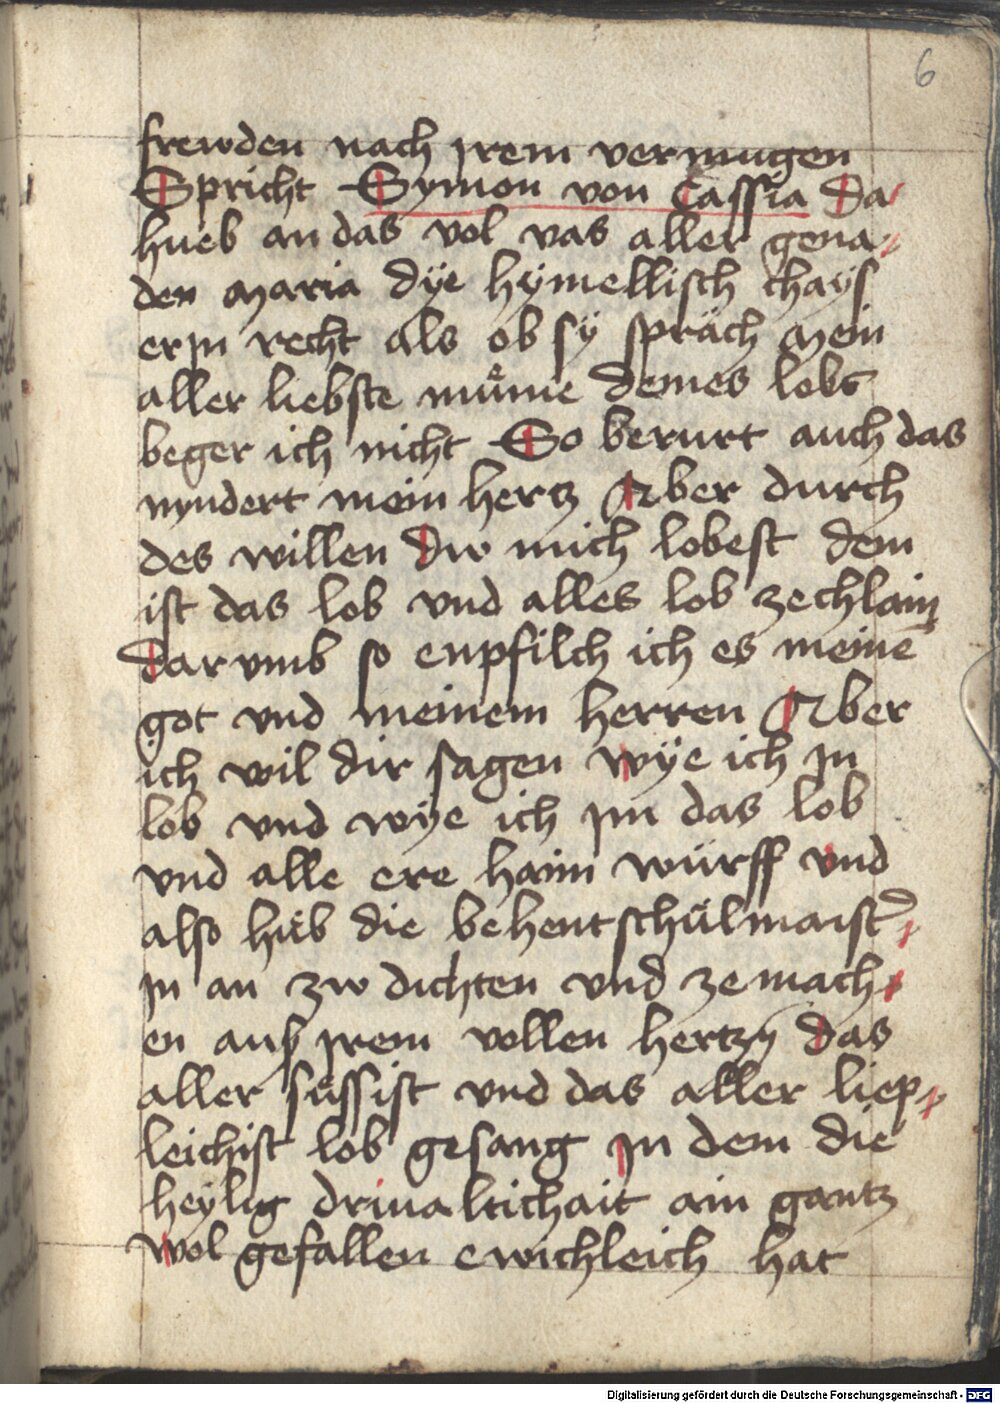 6
frewden nach jrem vermugen
Spricht Symon von Cassia Da
hueb an das vol vas aller gena
den Maria dÿe hÿmellisch chaÿs
erin recht als ob sÿ spräch Mein
aller liebste můme deines lobs
beger ich nicht So berurt auch das
nyndert mein hertz Aber durch
des willen Dw mich lobest dem
ist das lob vnd alles lob zechlain
Darvmb so enpfilch ich es meinē
got vnd meinem herren Aber
ich wil dir sagen wÿe ich jn
lob vnd wÿe ich jm das lob
vnd alle ere haim würff vnd
also hüb die behent schůlmaist
jn an zw dichten vnd ze mach
en auß jrem vollen hertzn das
aller süssist vnd das aller liep
leichist lob gesang jn dem die
heÿlig driualtichait ain gantz
wol gefallen ewichleich hat
Digitalisierung gefördert durch die Deutsche Forschungsgemeinschaft - DFG